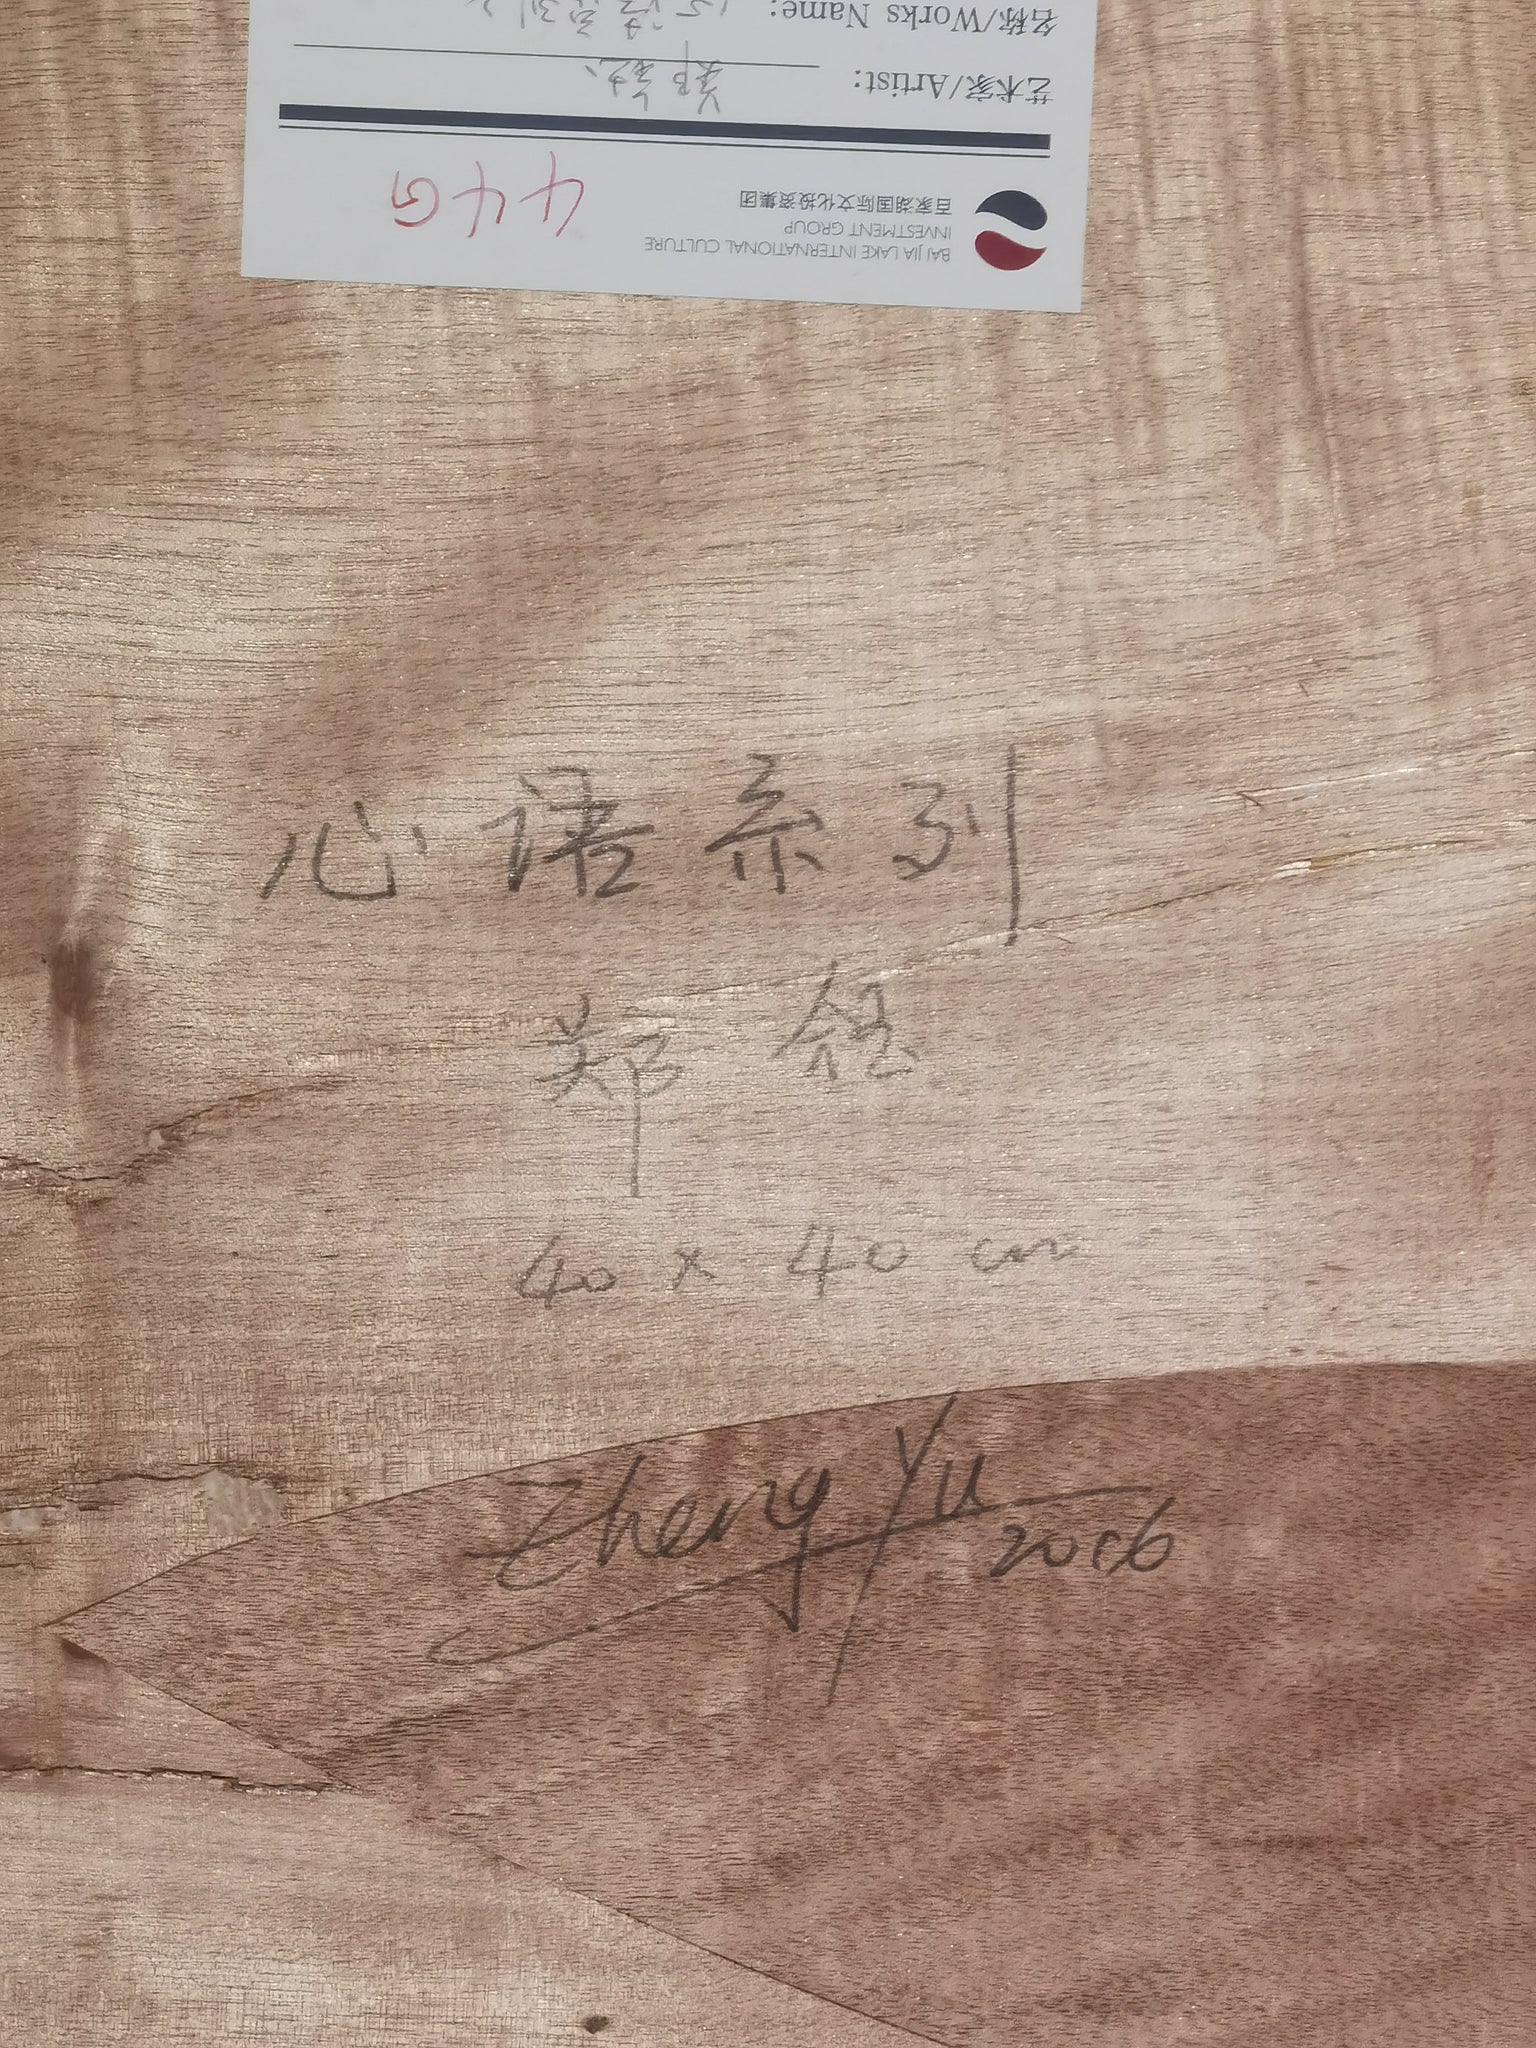 BAI JIA LAKE INTERNATIONAL CULTURE
INVESTMENT GROUP
百家湖国际文化投资集团
艺术家/Artist: 郑钰
名称/Works Name: 心语系列
心语系列
郑钰
40 x 40 cm
Zheng Yu
2016